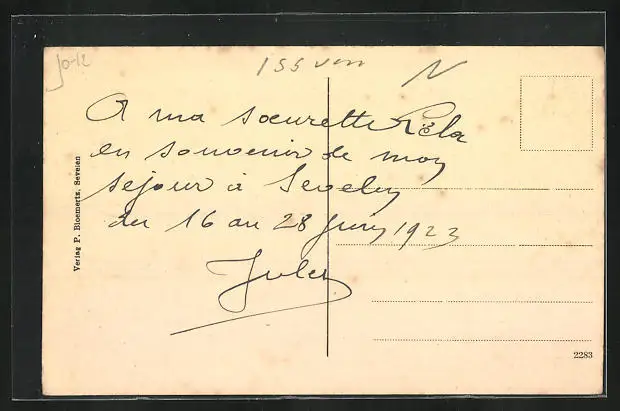 Jo-12
155 von
N
A ma sœurette Lëla
en souvenir de mon
séjour à Sevelen
du 16 au 28 Juin 1923
Jules
Verlag P. Bloemertz, Sevelen
2283